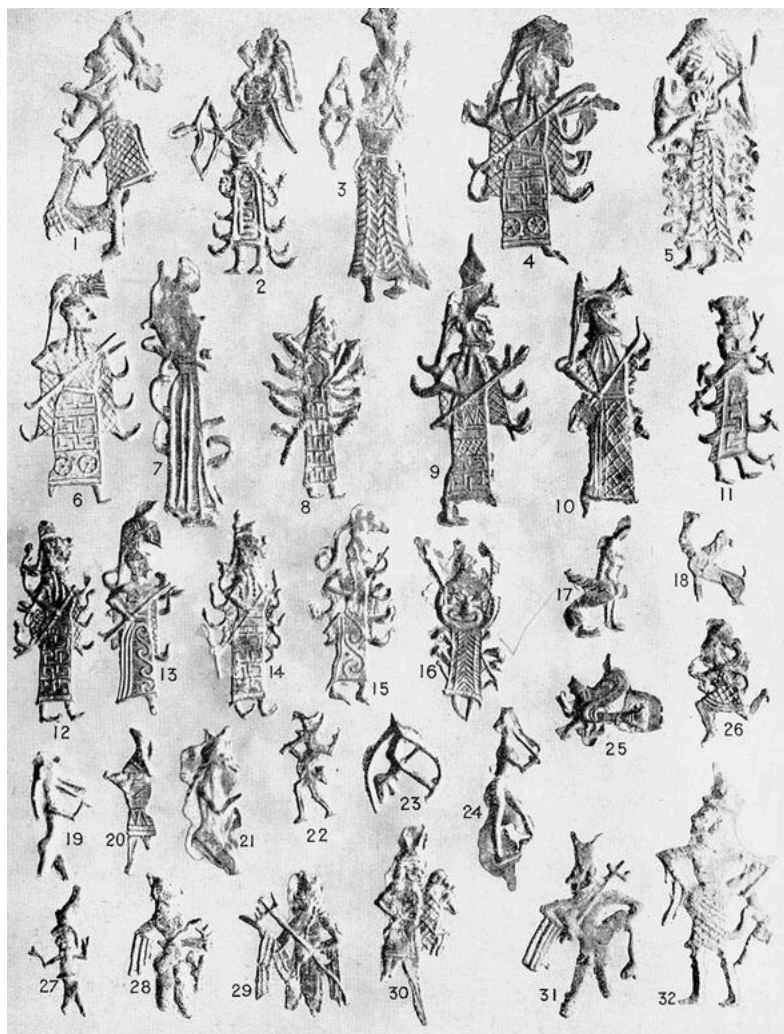 1
2
3
4
5
6
7
8
9
10
11
12
13
14
15
16
17
18
19
20
21
22
23
24
25
26
27
28
29
30
31
32